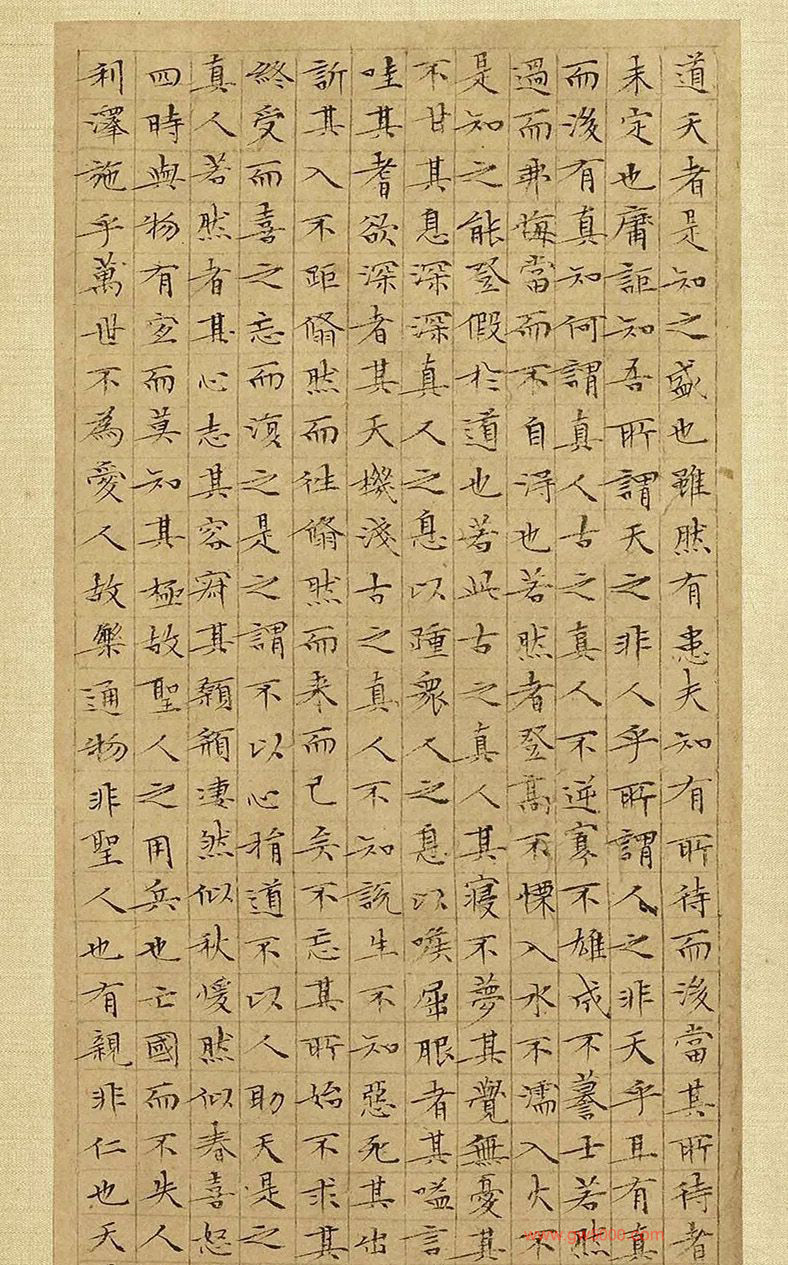 道天者是知之盛也雖然有患夫知有所待而後當其所待者
未定也庸詎知吾所謂天之非人乎所謂人之非天乎且有真
而後有真知何謂真人古之真人不逆寡不雄成不謩士若然
過而弗悔當而不自得也若然者登高不慄入水不濡入火不
是知之能登假於道也若此古之真人其寢不夢其覺無憂其
不甘其息深深真人之息以踵衆人之息以喉屈服者其嗌言
哇其耆欲深者其天機淺古之真人不知說生不知惡死其出
訢其入不距翛然而往翛然而來而已矣不忘其所始不求其
終受而喜之忘而復之是之謂不以心捐道不以人助天是之
真人若然者其心志其容寂其顙頯淒然似秋煖然似春喜怒
四時與物有宜而莫知其極故聖人之用兵也亡國而不失人
利澤施乎萬世不為愛人故樂通物非聖人也有親非仁也天